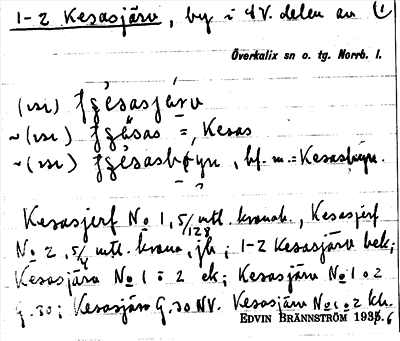 1-2 Kesasjärv, by i NV. delen av (1
Överkalix sn o. tg. Norrb. l.
(vse)
~(vse) =, Kesas
~(vse) , bf. m. = Kesasbyn.
Kesasjerf No 1, 5/128 mtl. kronoh., Kesasjerf
No 2, 5/ mtl. krono, jb; 1-2 Kesasjärv bek;
Kesasjärv No 1 o 2 ek; Kesasjärv No 1 o 2
G. 30; Kesasjärv G. 30 NV. Kesasjärv No 1 o 2 kk.
EDVIN BRÄNNSTRÖM 1936